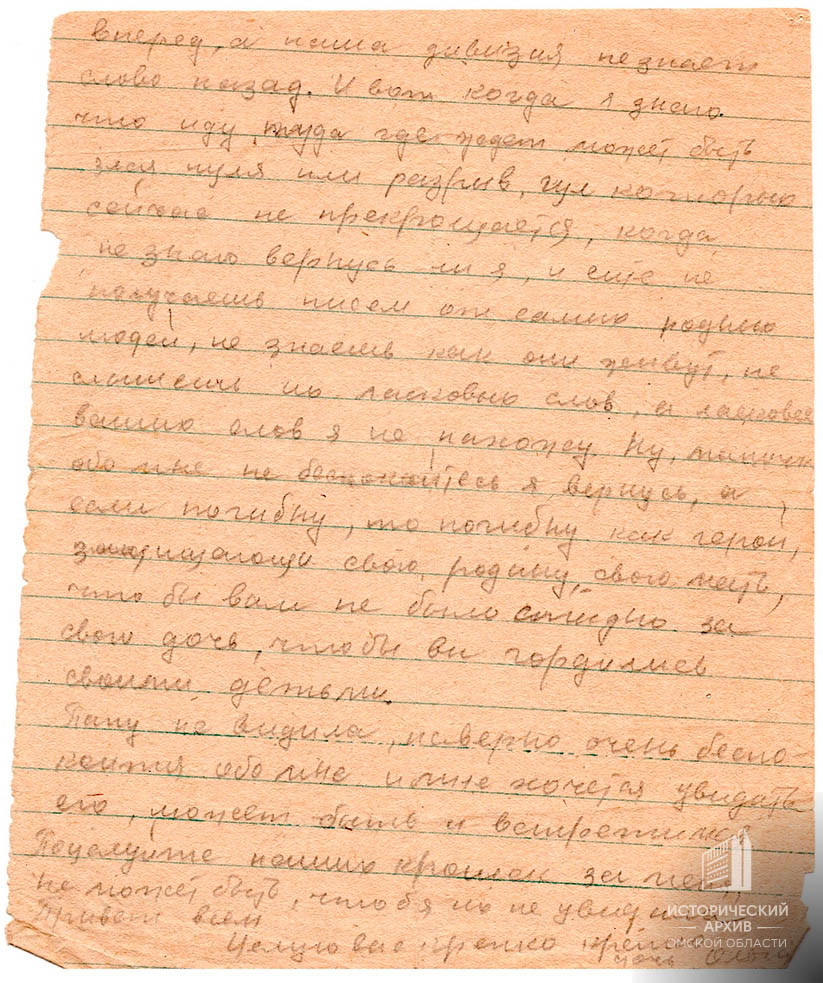 вперед, а наша дивизия не знает
слово назад. И вот когда я знаю
что иду, туда где ждет может быть
злая пуля или разрыв, гул которых
сейчас не прекращается, когда
не знаю вернусь ли я, и еще не
получаешь писем от самих родных
людей, не знаешь как они живут, не
слышешь их ласковых слов, а ласковее
ваших слов я не нахожу. Ну, мамочка
обо мне не беспокойтесь я вернусь, а
если погибну, то погибну как герой,
защищающий свою родину, свою мать,
что бы вам не было стыдно за
свою дочь, чтобы вы гордились
своими детьми.
Папу не видила, наверно очень беспо-
коится обо мне и мне хочется увидать
его, может быть и встретимся
Поцелуйте наших крошек за меня
не может быть, чтоб я их не увидила
Привет всем
Целую вас крепко крепко
дочь
ИСТОРИЧЕСКИЙ
АРХИВ
ОМСКОЙ ОБЛАСТИ